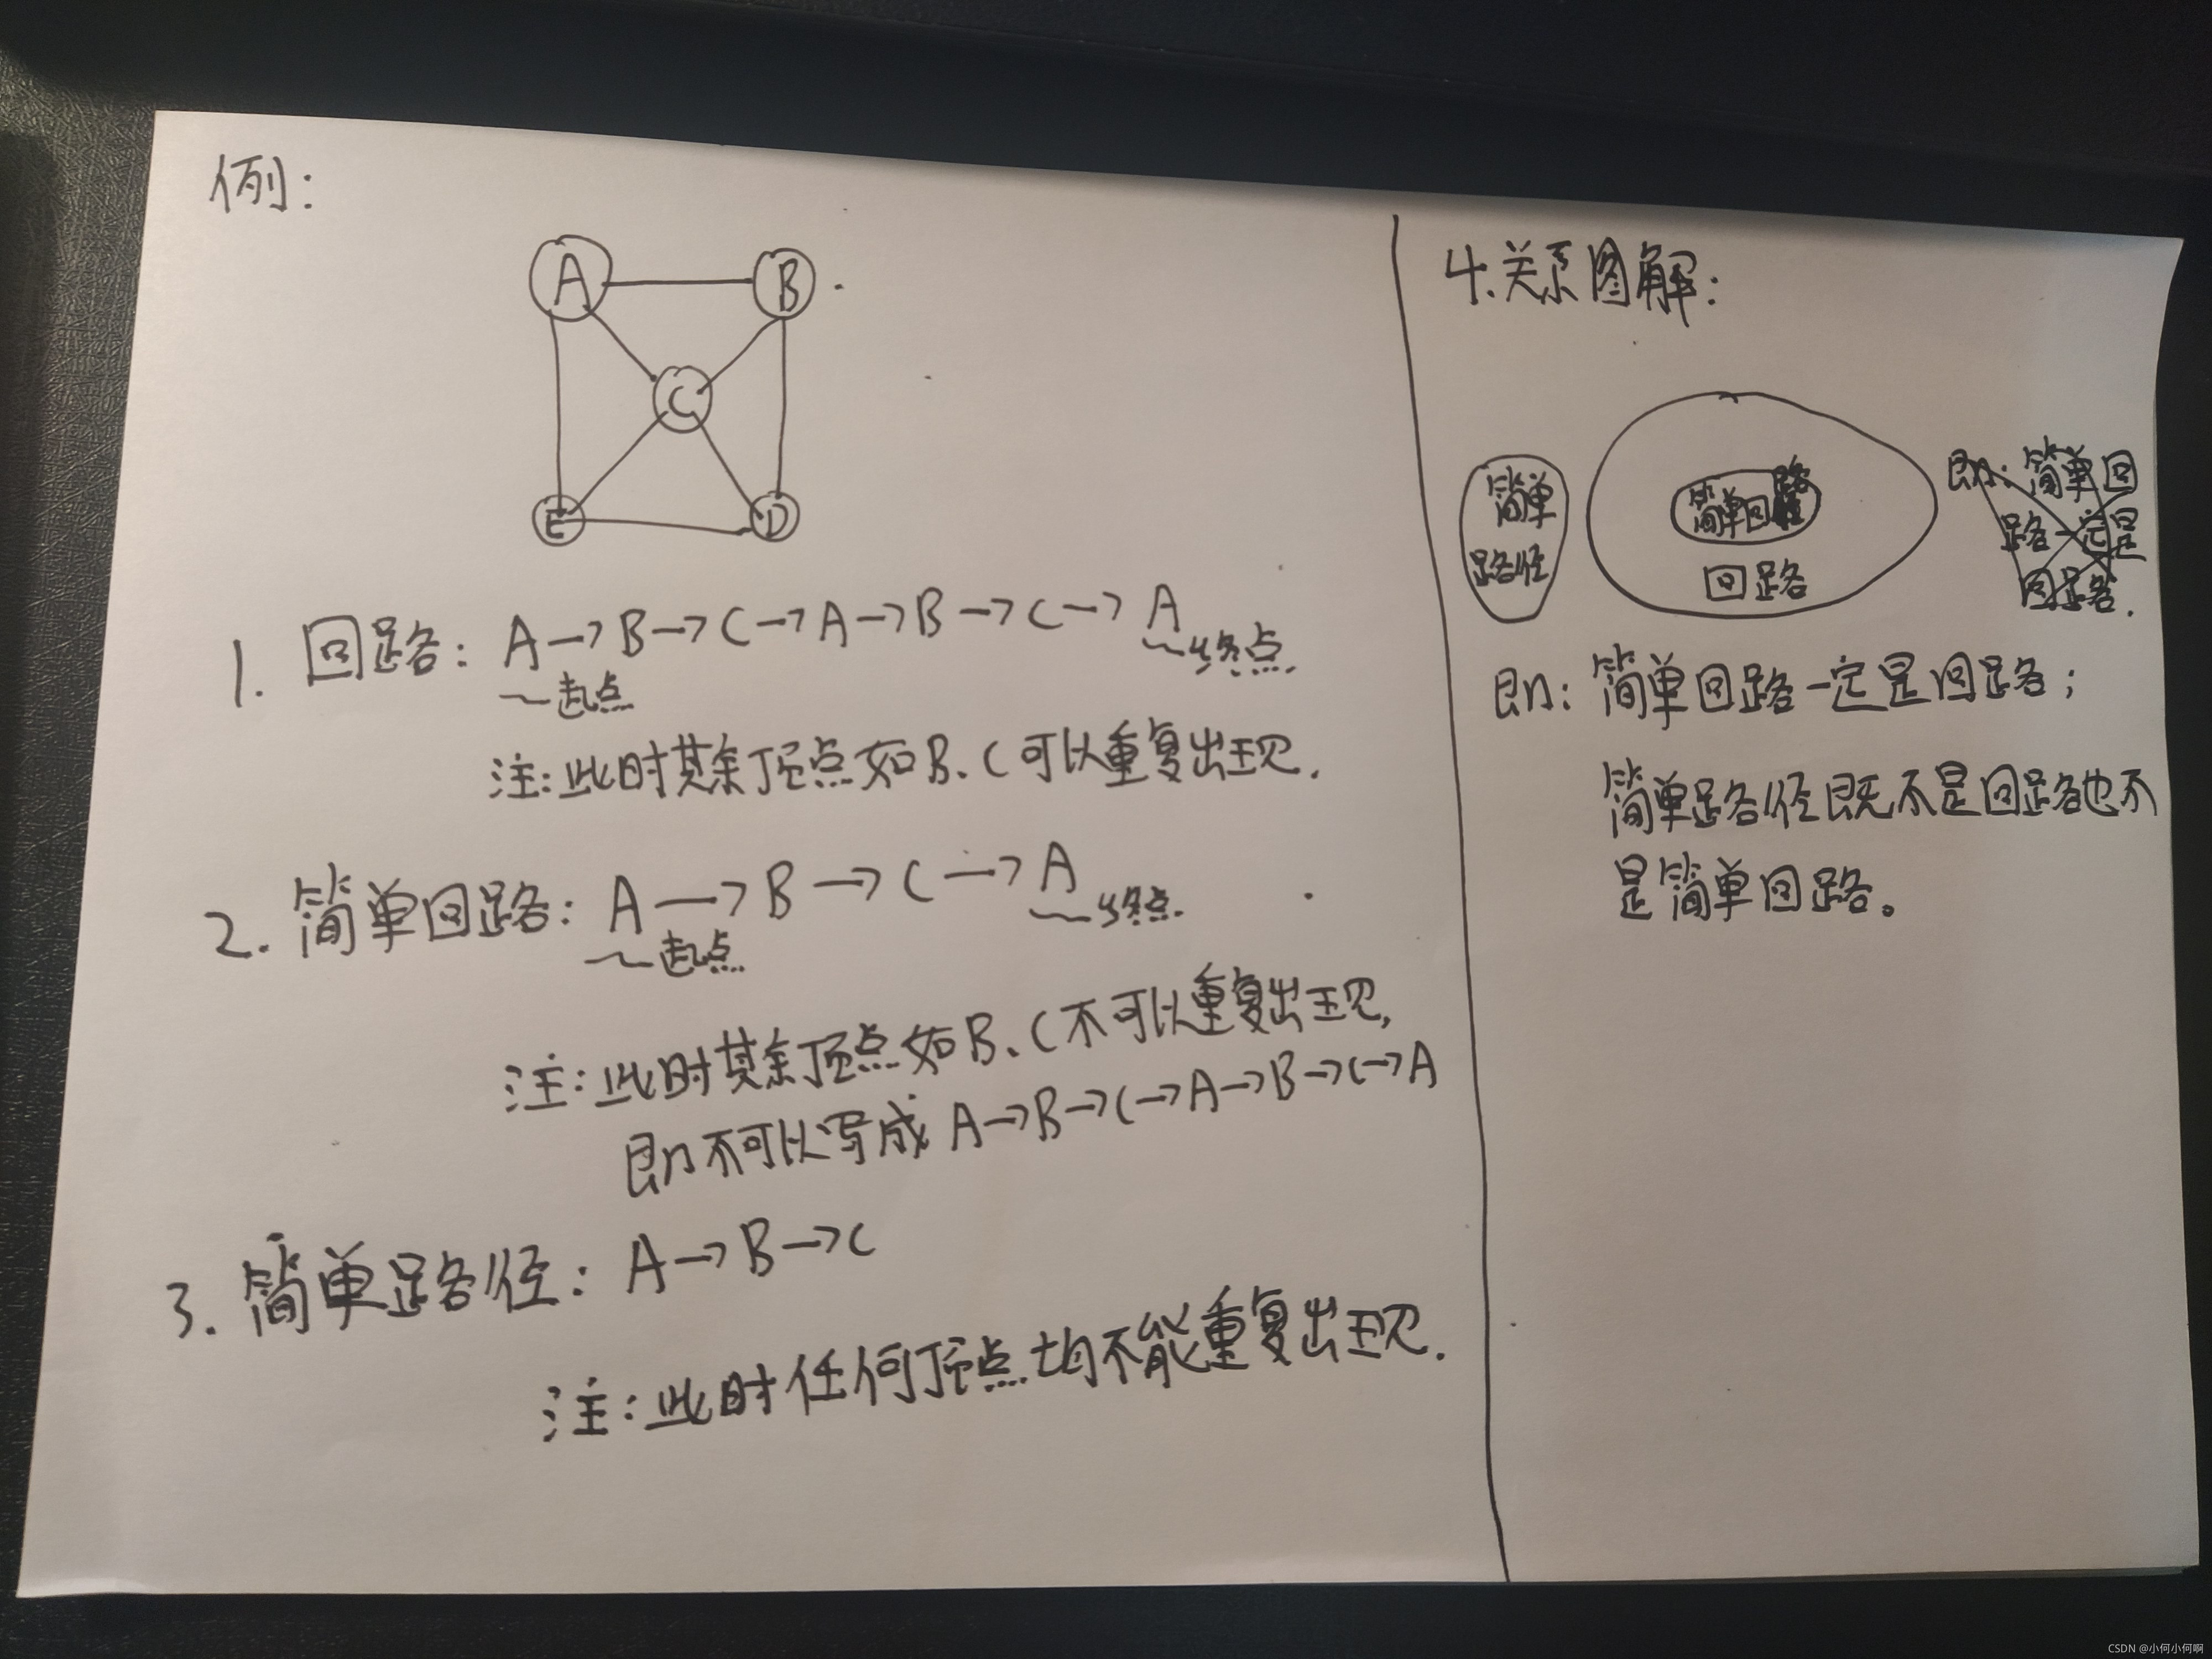 例:
A
B
C
E
D
1. 回路: A→B→C→A→B→C→A
起点
终点
注:此时其余顶点如B、C可以重复出现.
2. 简单回路: A→B→C→A
起点
终点
注:此时其余顶点如B、C不可以重复出现,
即不可以写成 A→B→C→A→B→C→A
3. 简单路径: A→B→C
注:此时任何顶点均不能重复出现.
4.关系图解:
简单
路径
简单回路
回路
即:简单回
路一定是
回路.
即:简单回路一定是回路;
简单路径既不是回路也不
是简单回路。
CSDN @小何小何啊